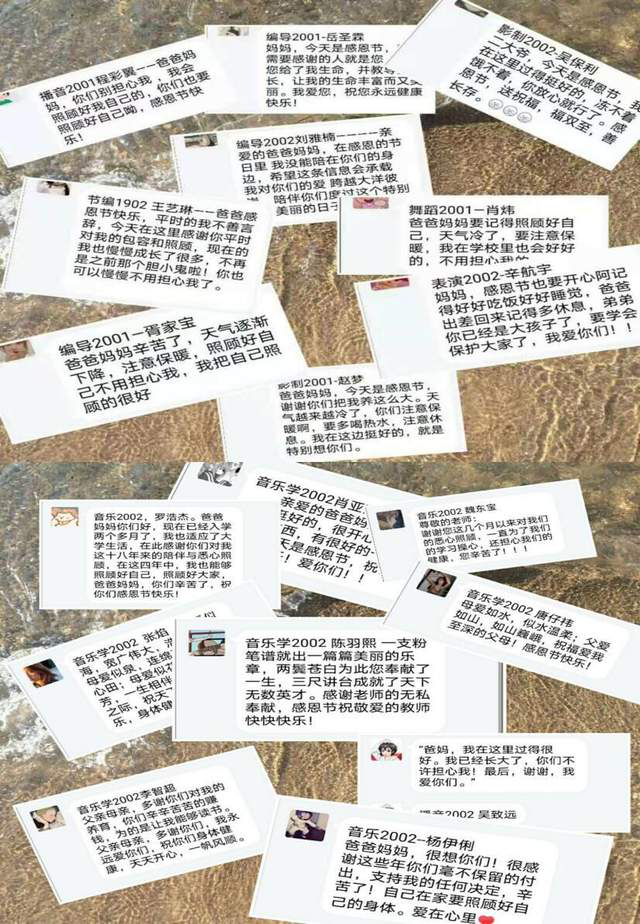 播音2001程彩翼——爸爸
妈妈，你们别担心我，我会
照顾好我自己的，你们也要
照顾好自己呦，感恩节快
乐！
编导2001-岳圣霖
妈妈，今天是感恩节，
需要感谢的人就是您
您给了我生命，并教
长，让我的生命丰富而又
丽。我爱您，祝您永远健康
快乐！
影制2002-吴保利
二大爷，今天是感恩
在这里过得挺好的，冻不着
饿不着，你放心就行了。感
恩节，送祝福，福双至，善
长存。
编导2002刘雅楠————亲
爱的爸爸妈妈，在感恩的节
日里 我没能陪在你们的身
边，希望这条信息会承载
我对你们的爱 跨越大洋彼
陪伴你们度过这个特别
美丽的日子
节编1902 王艺琳——爸爸感
恩节快乐，平时的我不善言
辞，今天在这里感谢你平时
对我的包容和照顾，现在的
我也慢慢成长了很多，不再
是之前那个胆小鬼啦！你也
可以慢慢不用担心我了。
舞蹈2001—肖炜
爸爸妈妈要记得照顾好自
己，天气冷了，要注意保
暖，我在学校里也会好好
的，不用担心我的
表演2002-辛航宇
妈妈，感恩节也要开心阿记
得好好吃饭好好睡觉，爸爸
出差回来记得多休息，弟弟
你已经是大孩子了，要学会
保护大家了，我爱你们！！
编导2001—胥家宝
爸爸妈妈辛苦了，天气逐渐
下降，注意保暖，照顾好自
己不用担心我，我把自己照
顾的很好
影制2001-赵梦
爸爸妈妈，今天是感恩节，
谢谢你们把我养这么大。天
气越来越冷了，你们注意保
暖啊，要多喝热水，注意休
息。我在这边挺好的，就是
特别想你们。
音乐学2002，罗浩杰。爸爸
妈妈你们好，现在已经入学
两个多月了，我也适应了大
学生活，在此感谢你们对我
这十八年来的陪伴与悉心照
顾，在这四年中，我也能够
照顾好自己，照顾好大家，
爸爸妈妈，你们辛苦了，祝
你们感恩节快乐！
音乐学2002肖亚
亲爱的爸爸妈
挺好的，很开心
西，有很好的
天是感恩节，祝
乐！爱你们！
音乐学2002 魏东宝
尊敬的老师：
谢谢您这几个月以来对我们
的悉心照顾，一直为了我们
的学习操心，还担心我们的
健康，您辛苦了！！！
音乐学2002 唐仔祎
母爱如水，似水温柔；父爱
如山，如山巍峨，祝福爱我
至深的父母！感恩节快乐！
音乐学2002 张焰
海，宽广伟大；
母爱似泉，连绵
心田；母爱似花
芳，一生相伴
之际，祝天下
乐，身体健
音乐学2002 陈羽熙 一支粉
笔谱就出一篇篇美丽的乐
章，两鬓苍白为此您奉献了
一生，三尺讲台成就了天下
无数英才。感谢老师的无私
奉献，感恩节祝敬爱的教师
快快快乐！
“爸妈，我在这里过得很
好。我已经长大了，你们不
许担心我！最后，谢谢，我
爱你们。”
播音2002 吴致远
音乐学2002李智超
父亲母亲，多谢你们对我的
养育，你们辛辛苦苦的赚
钱，为的是让我能够读书。
父亲母亲，多谢你们，我永
远爱你们，祝你们身体健
康，天天开心，一帆风顺。
音乐2002--杨伊俐
爸爸妈妈，很想你们！很感
谢这些年你们毫不保留的付
出，支持我的任何决定，辛
苦了！自己在家要照顾好自
己的身体。爱在心里